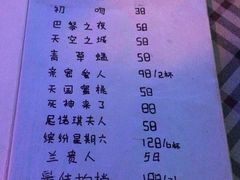 初吻 38
巴黎之夜 58
天空之城 58
青草蜢 58
亲密爱人 98/2杯
天国蜜桃 58
死神来了 88
尼诺琪夫人 58
缤纷星期六 128/6杯
兰贵人 58